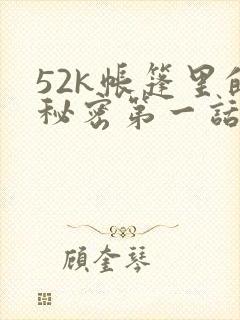 52k帳篷里的
秘密第一話
顧奎琴